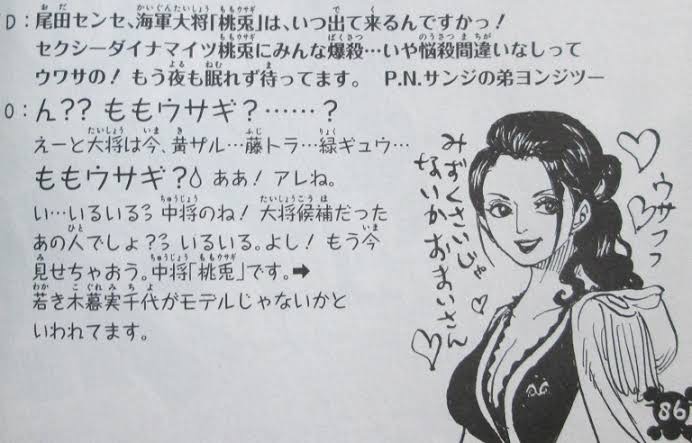 D：尾田センセ、海軍大将「桃兎」は、いつ出て来るんですかっ！
セクシーダイナマイツ桃兎にみんな爆殺…いや悩殺間違いなしって
ウワサの！もう夜も眠れず待ってます。 P.N.サンジの弟ヨンジツー
O：ん？？ ももウサギ？……？
えーと大将は今、黄ザル…藤トラ…緑ギュウ…
ももウサギ？ ああ！アレね。
い…いるいる 中将のね！大将候補だった
あの人でしょ？ いるいる。よし！もう今
見せちゃおう。中将「桃兎」です。➡
若き木暮実千代がモデルじゃないかと
いわれてます。
みずくさいじゃ
ないかおまいさん
ウサフフ
86